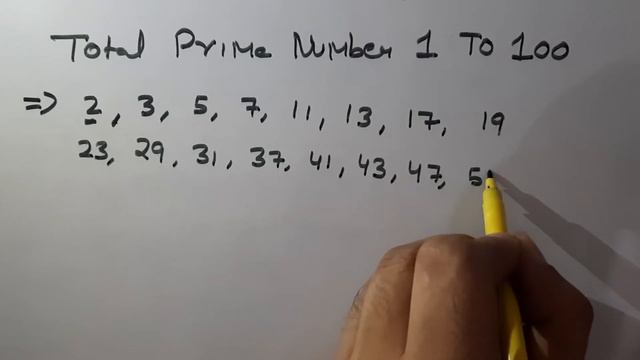 Total Prime Number 1 To 100
=> 2, 3, 5, 7, 11, 13, 17, 19
23, 29, 31, 37, 41, 43, 47, 5